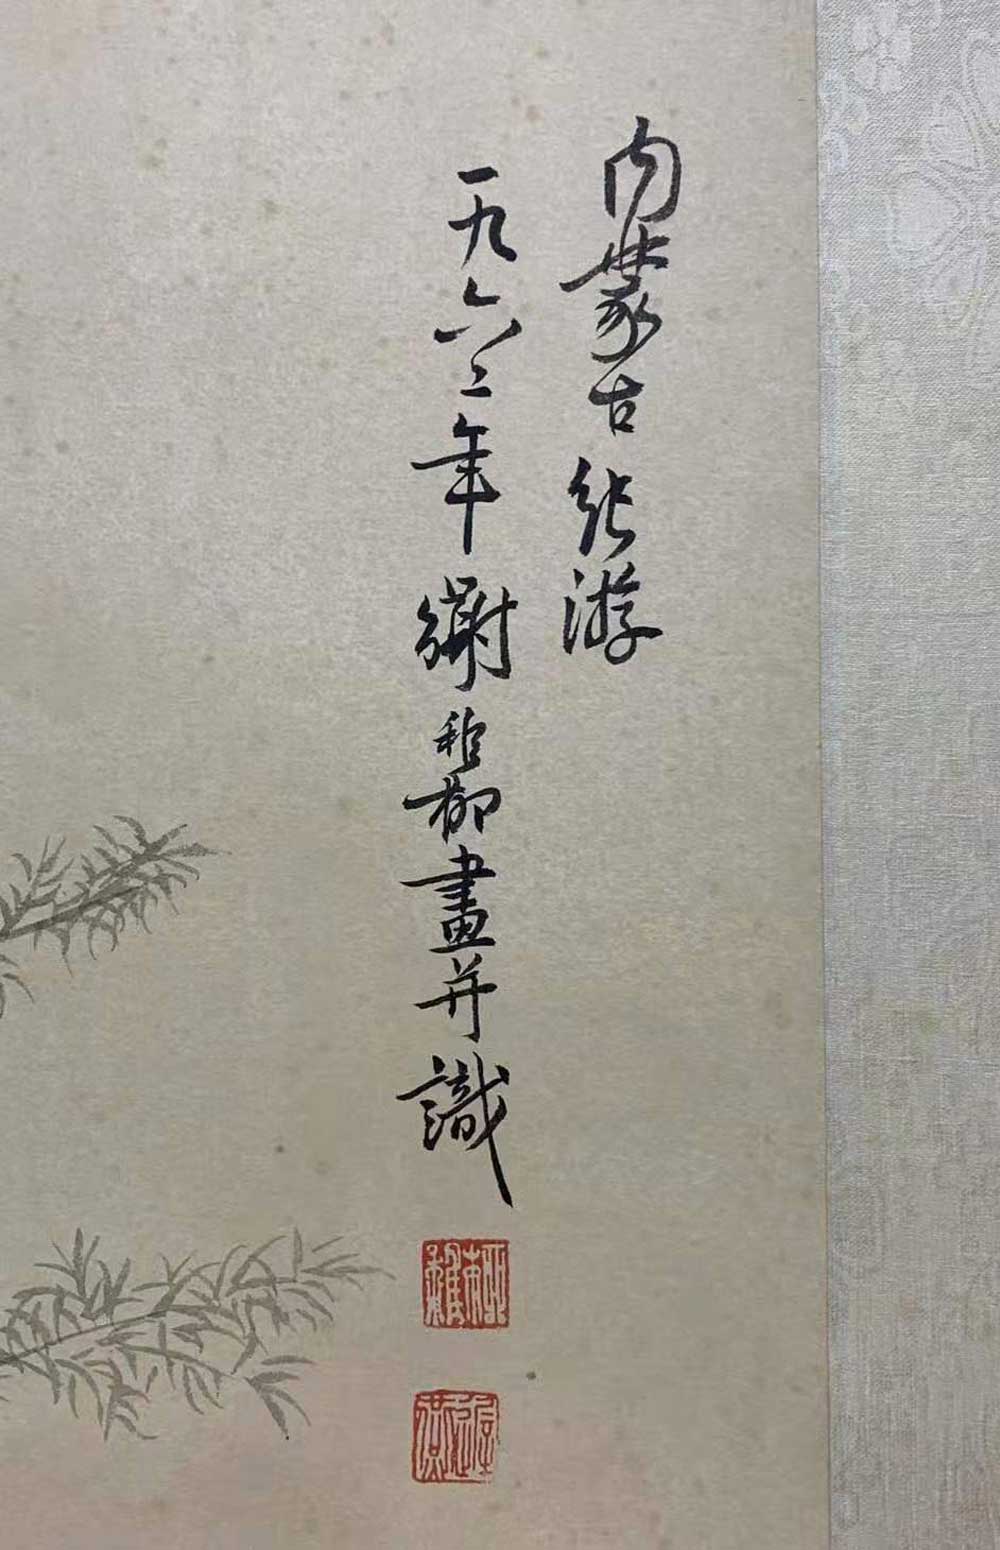 内蒙古紀游
一九六二年謝稚柳畫并識